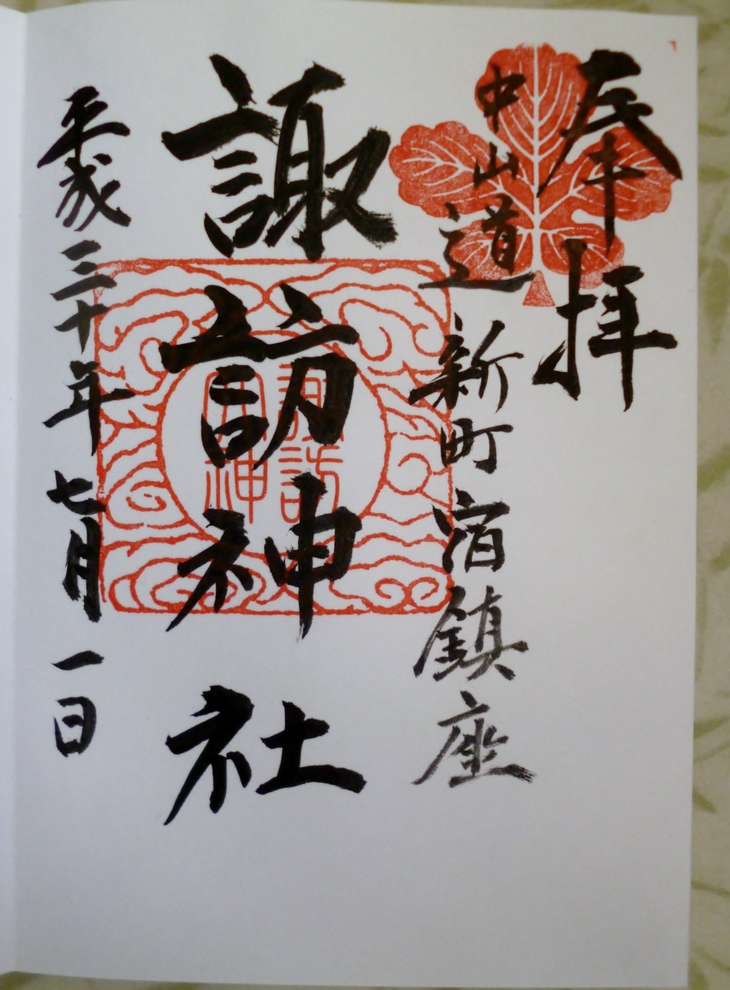 奉拝
中山道新町宿鎮座
諏訪神社
平成三十年七月一日